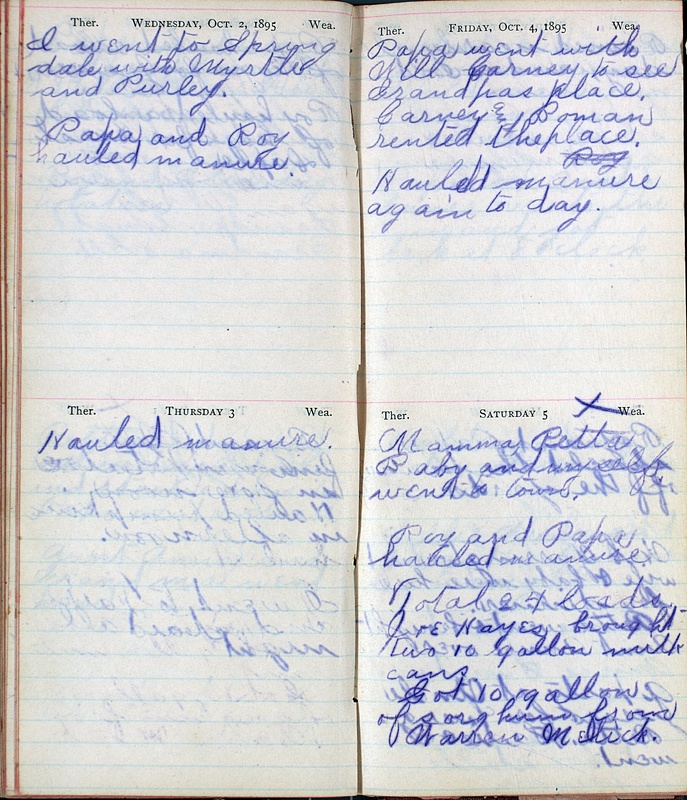 Ther. WEDNESDAY, OCT. 2, 1895 Wea.
I went to Spring
dale with Myrtle
and Purley.
Papa and Roy
hauled manure.
Ther. THURSDAY 3 Wea.
Hauled manure.
Ther. FRIDAY, OCT. 4, 1895 Wea.
Papa went with
Will Carney to see
Grandpas place.
Carney & Poman
rented the place.
Roy
Hauled manure
again to day.
Ther. SATURDAY 5 Wea.
Mamma Retta
Baby and myself
went to town.
Roy and Papa
hauled manure.
Total 24 loads
Ire Hayes brought
two 10 gallon milk
cans.
Got 10 gallon
of sorghum from
Warren Melick.